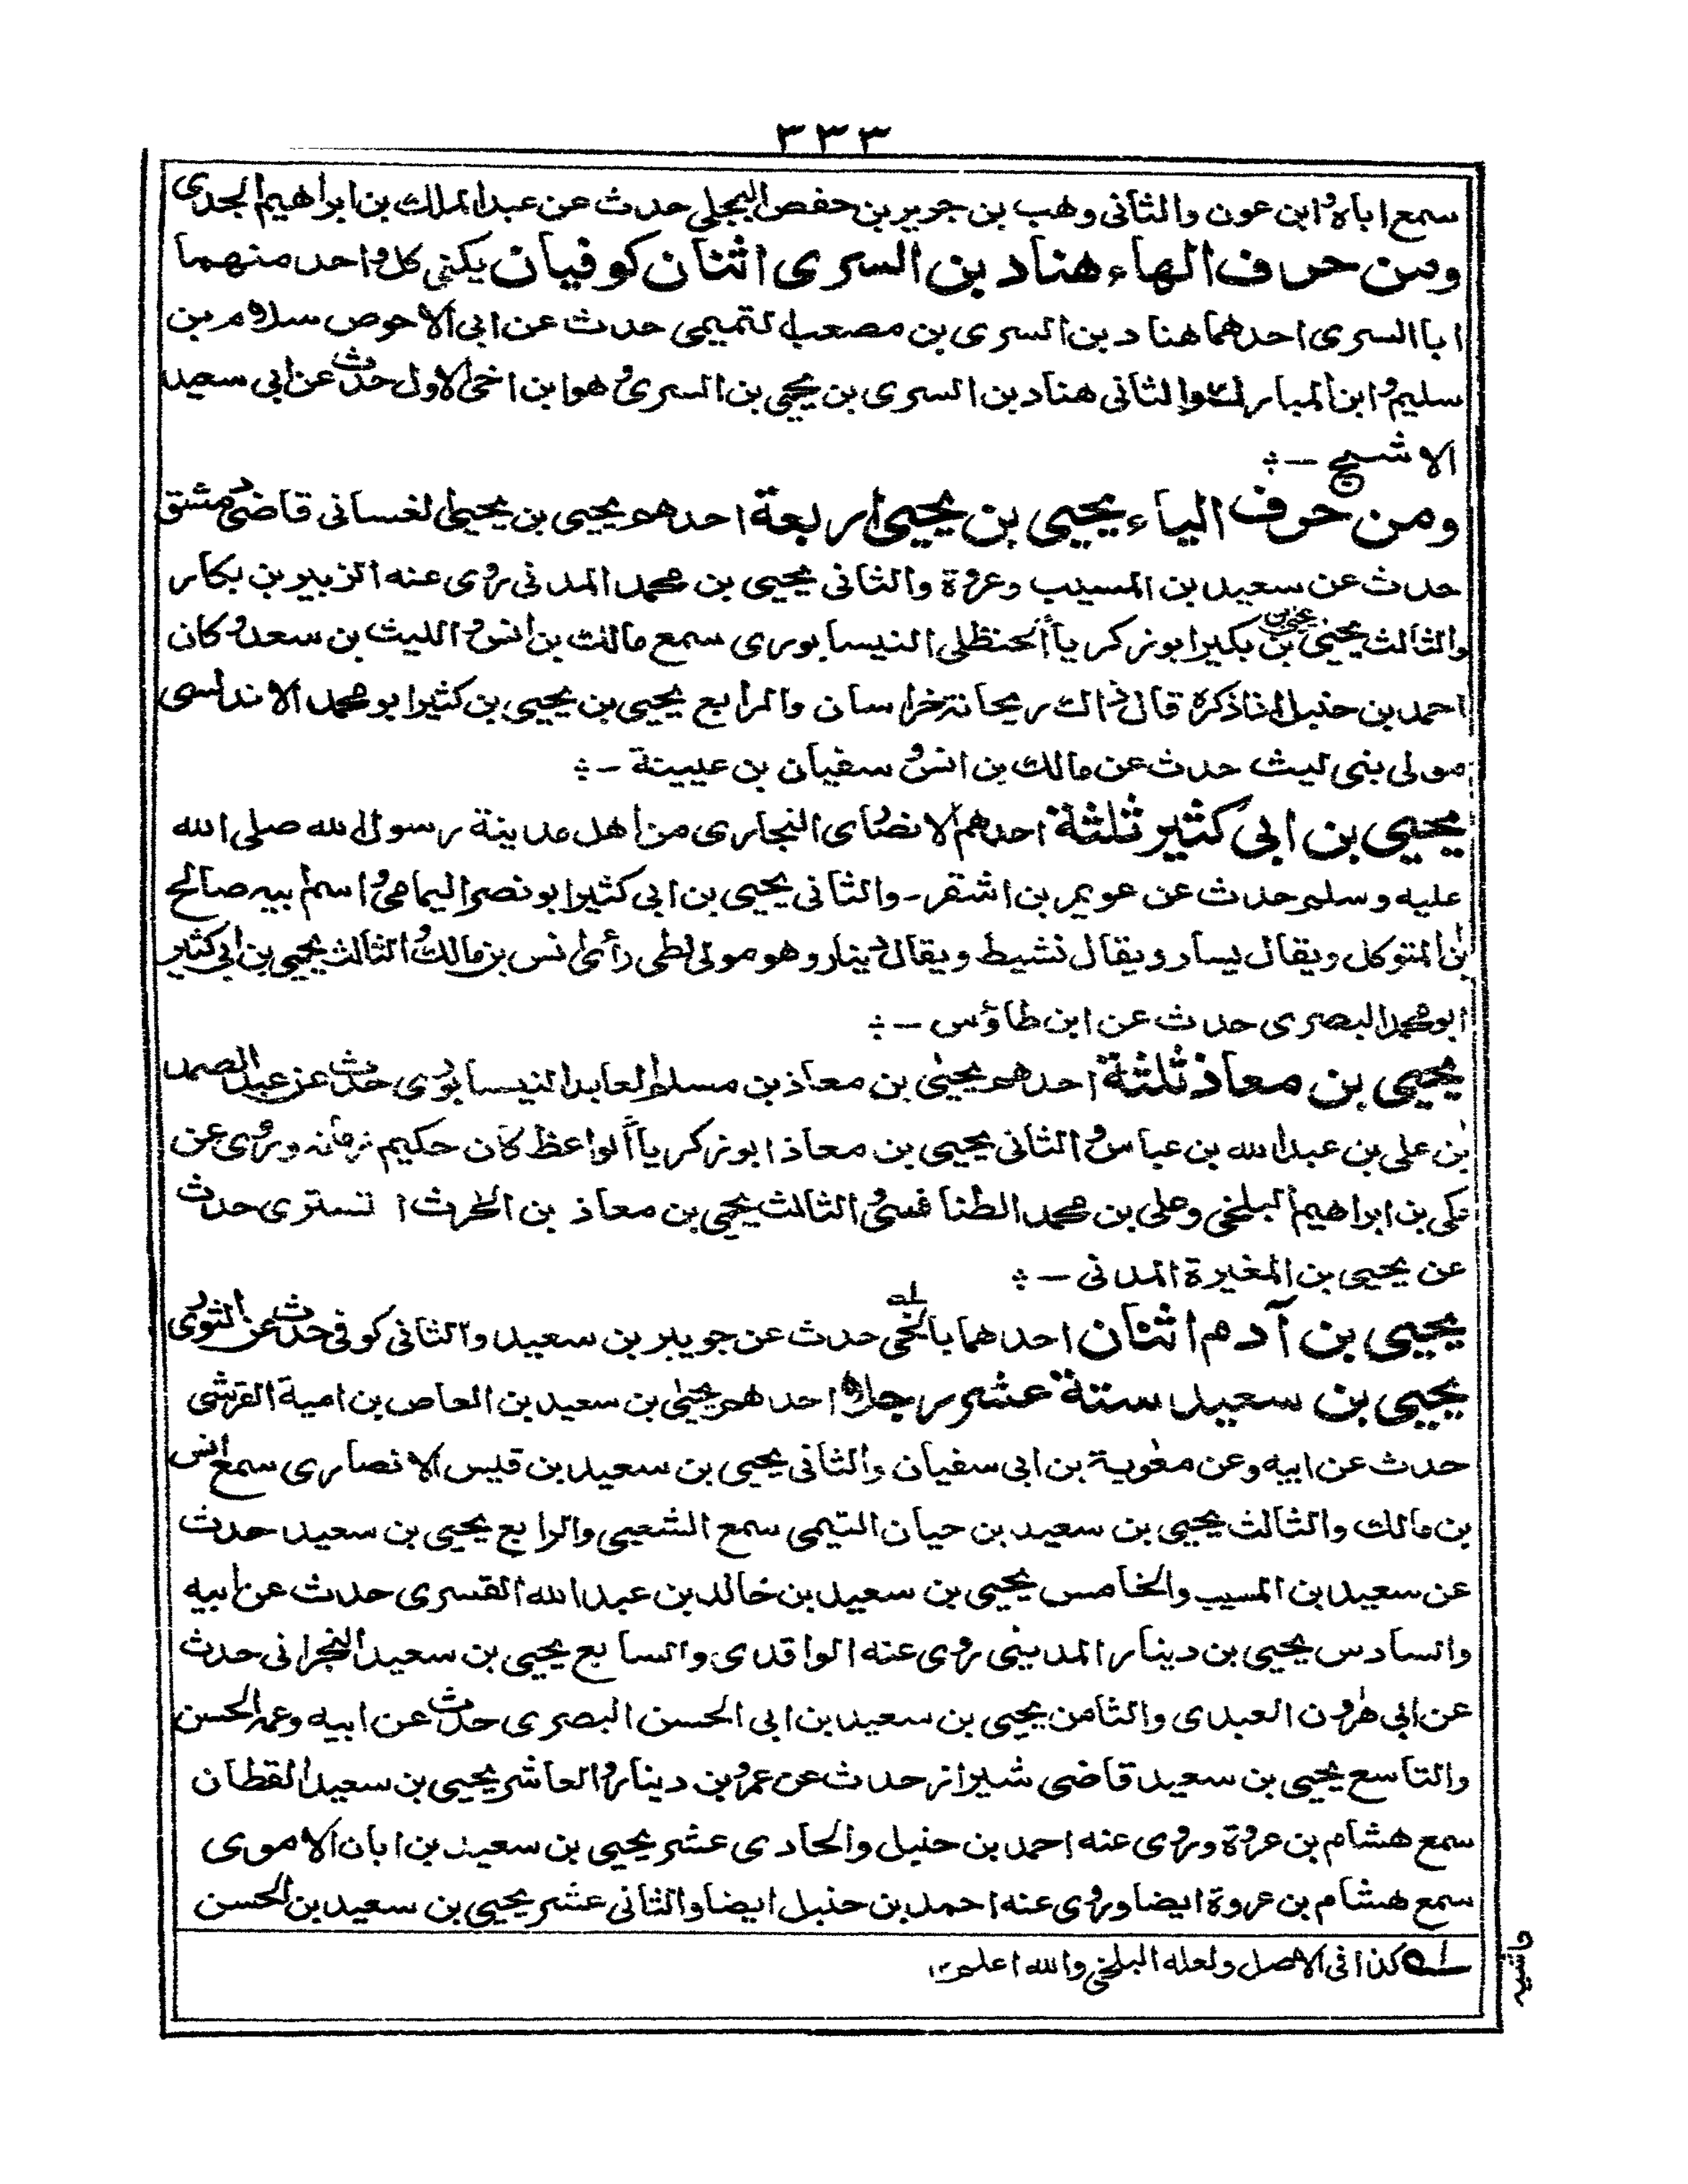 ٣٣٣
سمع اباه وابن عون والثانى وهب بن جرير بن حفص البجلى حدث عن عبد الملك بن ابراهيم الجدى
ومن حرف الهاء هناد بن السرى اثنان كوفيان يكنى كل واحد منهما
ابا السرى احدهما هناد بن السرى بن مصعب التميمى حدث عن ابى الاحوص سلام بن
سليم وابن المبارك والثانى هناد بن السرى بن يحيى بن السرى وهو ابن اخى الاول حدث عن ابى سعيد
الاشج -
ومن حرف الياء يحيى بن يحيى اربعة احدهم يحيى بن يحيى الغسانى قاضى دمشق
حدث عن سعيد بن المسيب وعروة والثانى يحيى بن محمد المدنى روى عنه الزبير بن بكار
والثالث يحيى بن يحيى بن بكير ابو زكرياء الحنظلى النيسابورى سمع مالك بن انس والليث بن سعد وكان
احمد بن حنبل اذا ذكره قال ذاك ريحانة خراسان والرابع يحيى بن يحيى بن كثير ابو محمد الاندلسى
مولى بنى ليث حدث عن مالك بن انس وسفيان بن عيينة -
يحيى بن ابى كثير ثلثة احدهم الانصارى النجارى من اهل مدينة رسول الله صلى الله
عليه وسلم حدث عن عويمر بن اشقر - والثانى يحيى بن ابى كثير ابو نصر اليمامى واسم ابيه صالح
بن المتوكل ويقال يسار ويقال نشيط ويقال دينار وهو مولى لطى رأى انس بن مالك والثالث يحيى بن ابى كثير
ابو محمد البصرى حدث عن ابن طاؤس -
يحيى بن معاذ ثلثة احدهم يحيى بن معاذ بن مسلم العابد النيسابورى حدث عن عبد الصمد
بن على بن عبد الله بن عباس والثانى يحيى بن معاذ ابو زكرياء الواعظ كان حكيم زمانه وروى عن
مكى بن ابراهيم البلخى وعلى بن محمد الطنافسى والثالث يحيى بن معاذ بن الحرث التسترى حدث
عن يحيى بن المغيرة المدنى -
يحيى بن آدم اثنان احدهما بالخى له حدث عن جويبر بن سعيد والثانى كوفى حدث عن الثورى
يحيى بن سعيد ستة عشر رجلا احدهم يحيى بن سعيد بن العاص بن امية القرشى
حدث عن ابيه وعن معٰوية بن ابى سفيان والثانى يحيى بن سعيد بن قيس الانصارى سمع انس
بن مالك والثالث يحيى بن سعيد بن حيان التيمى سمع الشعبى والرابع يحيى بن سعيد حدث
عن سعيد بن المسيب والخامس يحيى بن سعيد بن خالد بن عبد الله القسرى حدث عن ابيه
والسادس يحيى بن دينار المدينى روى عنه الواقدى والسابع يحيى بن سعيد النجرانى حدث
عن ابى هٰرون العبدى والثامن يحيى بن سعيد بن ابى الحسن البصرى حدث عن ابيه وعمه الحسن
والتاسع يحيى بن سعيد قاضى شيراز حدث عن عمرو بن دينار والعاشر يحيى بن سعيد القطان
سمع هشام بن عروة وروى عنه احمد بن حنبل والحادى عشر يحيى بن سعيد بن ابان الاموى
سمع هشام بن عروة ايضا وروى عنه احمد بن حنبل ايضا والثانى عشر يحيى بن سعيد بن الحسن
له كذا فى الاصل ولعله البلخى والله اعلم ١٢
حاشيه